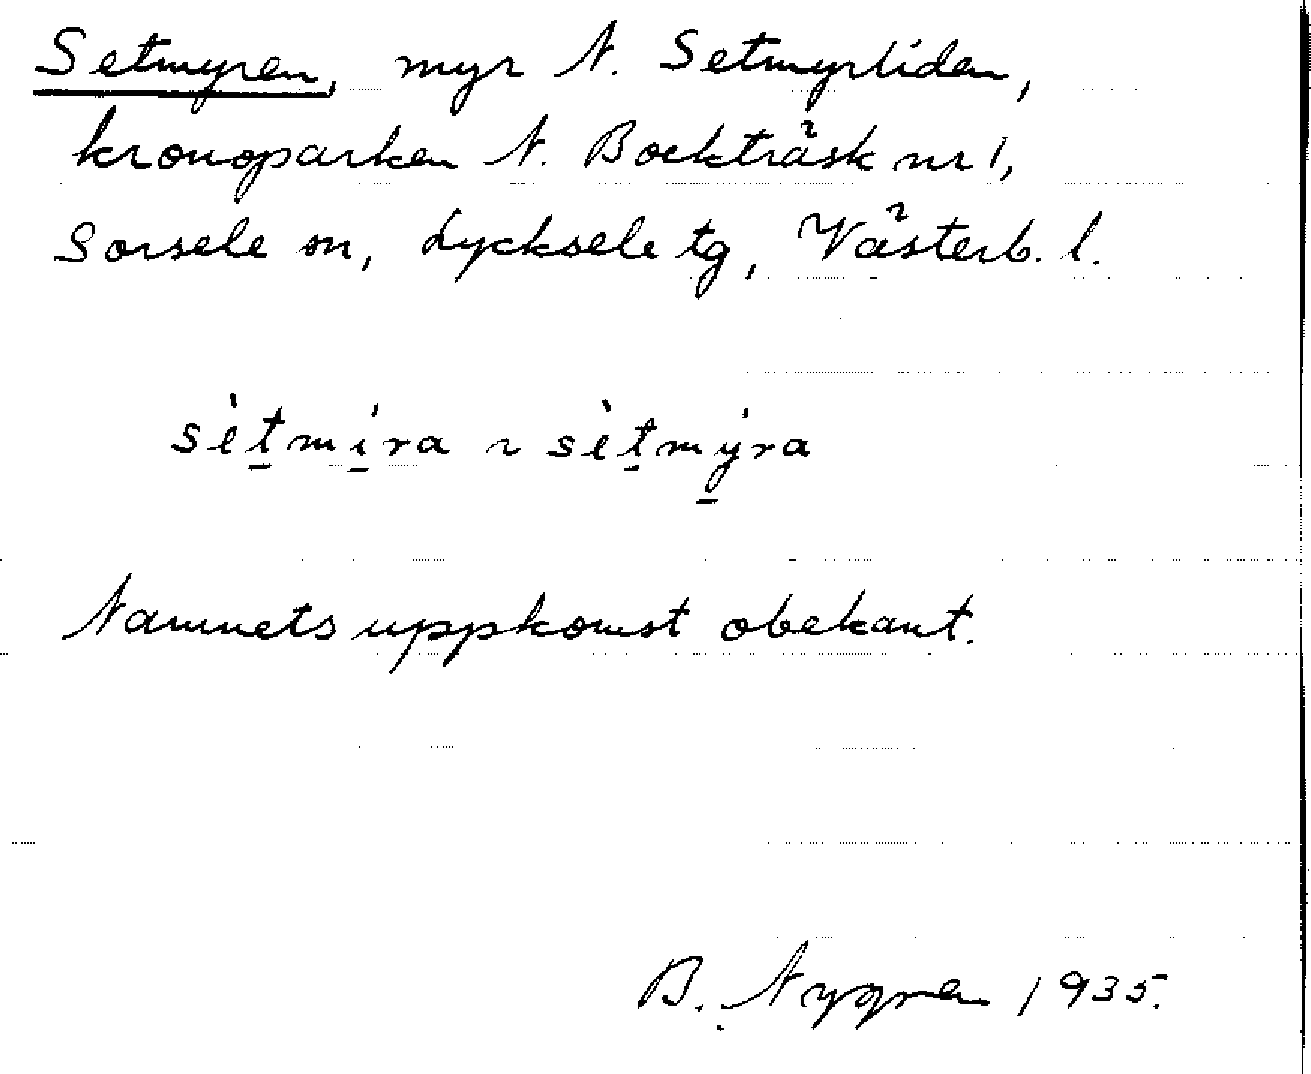 Setmyren, myr N. Setmyrliden,
kronoparken N. Bockträsk nr 1,
Sorsele sn, Lycksele tg, Västerb. l.
sètmíra ~ sètmýra
Namnets uppkomst obekant.
B. Nygren 1935.